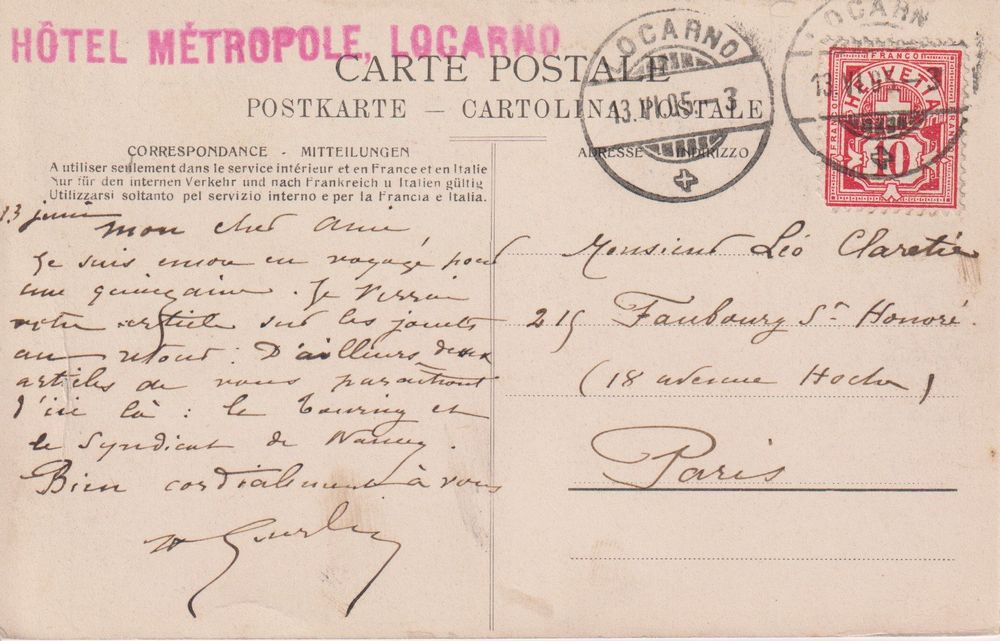 HÔTEL MÉTROPOLE, LOCARNO
CARTE POSTALE
POSTKARTE – CARTOLINA POSTALE
CORRESPONDANCE - MITTEILUNGEN
A utiliser seulement dans le service intérieur et en France et en Italie
Nur für den internen Verkehr und nach Frankreich u Italien gültig
Utilizzarsi soltanto pel servizio interno e per la Francia e Italia.
13 juin
mon cher Ami
Je suis encore en voyage pour
une quinzaine. Je verrai
votre article sur les jouets
au retour. D'ailleurs deux
articles de vous paraîtront
d'ici là : le Touring et
le Syndicat de Nancy.
Bien cordialement à vous
ADRESSE INDIRIZZO
Monsieur Léo Claretie
215 Faubourg St Honoré.
(18 avenue Hoche)
Paris
LOCARNO
13.VI.05. 3
LOCARN
13.VI.
FRANCO
HELVETIA
10